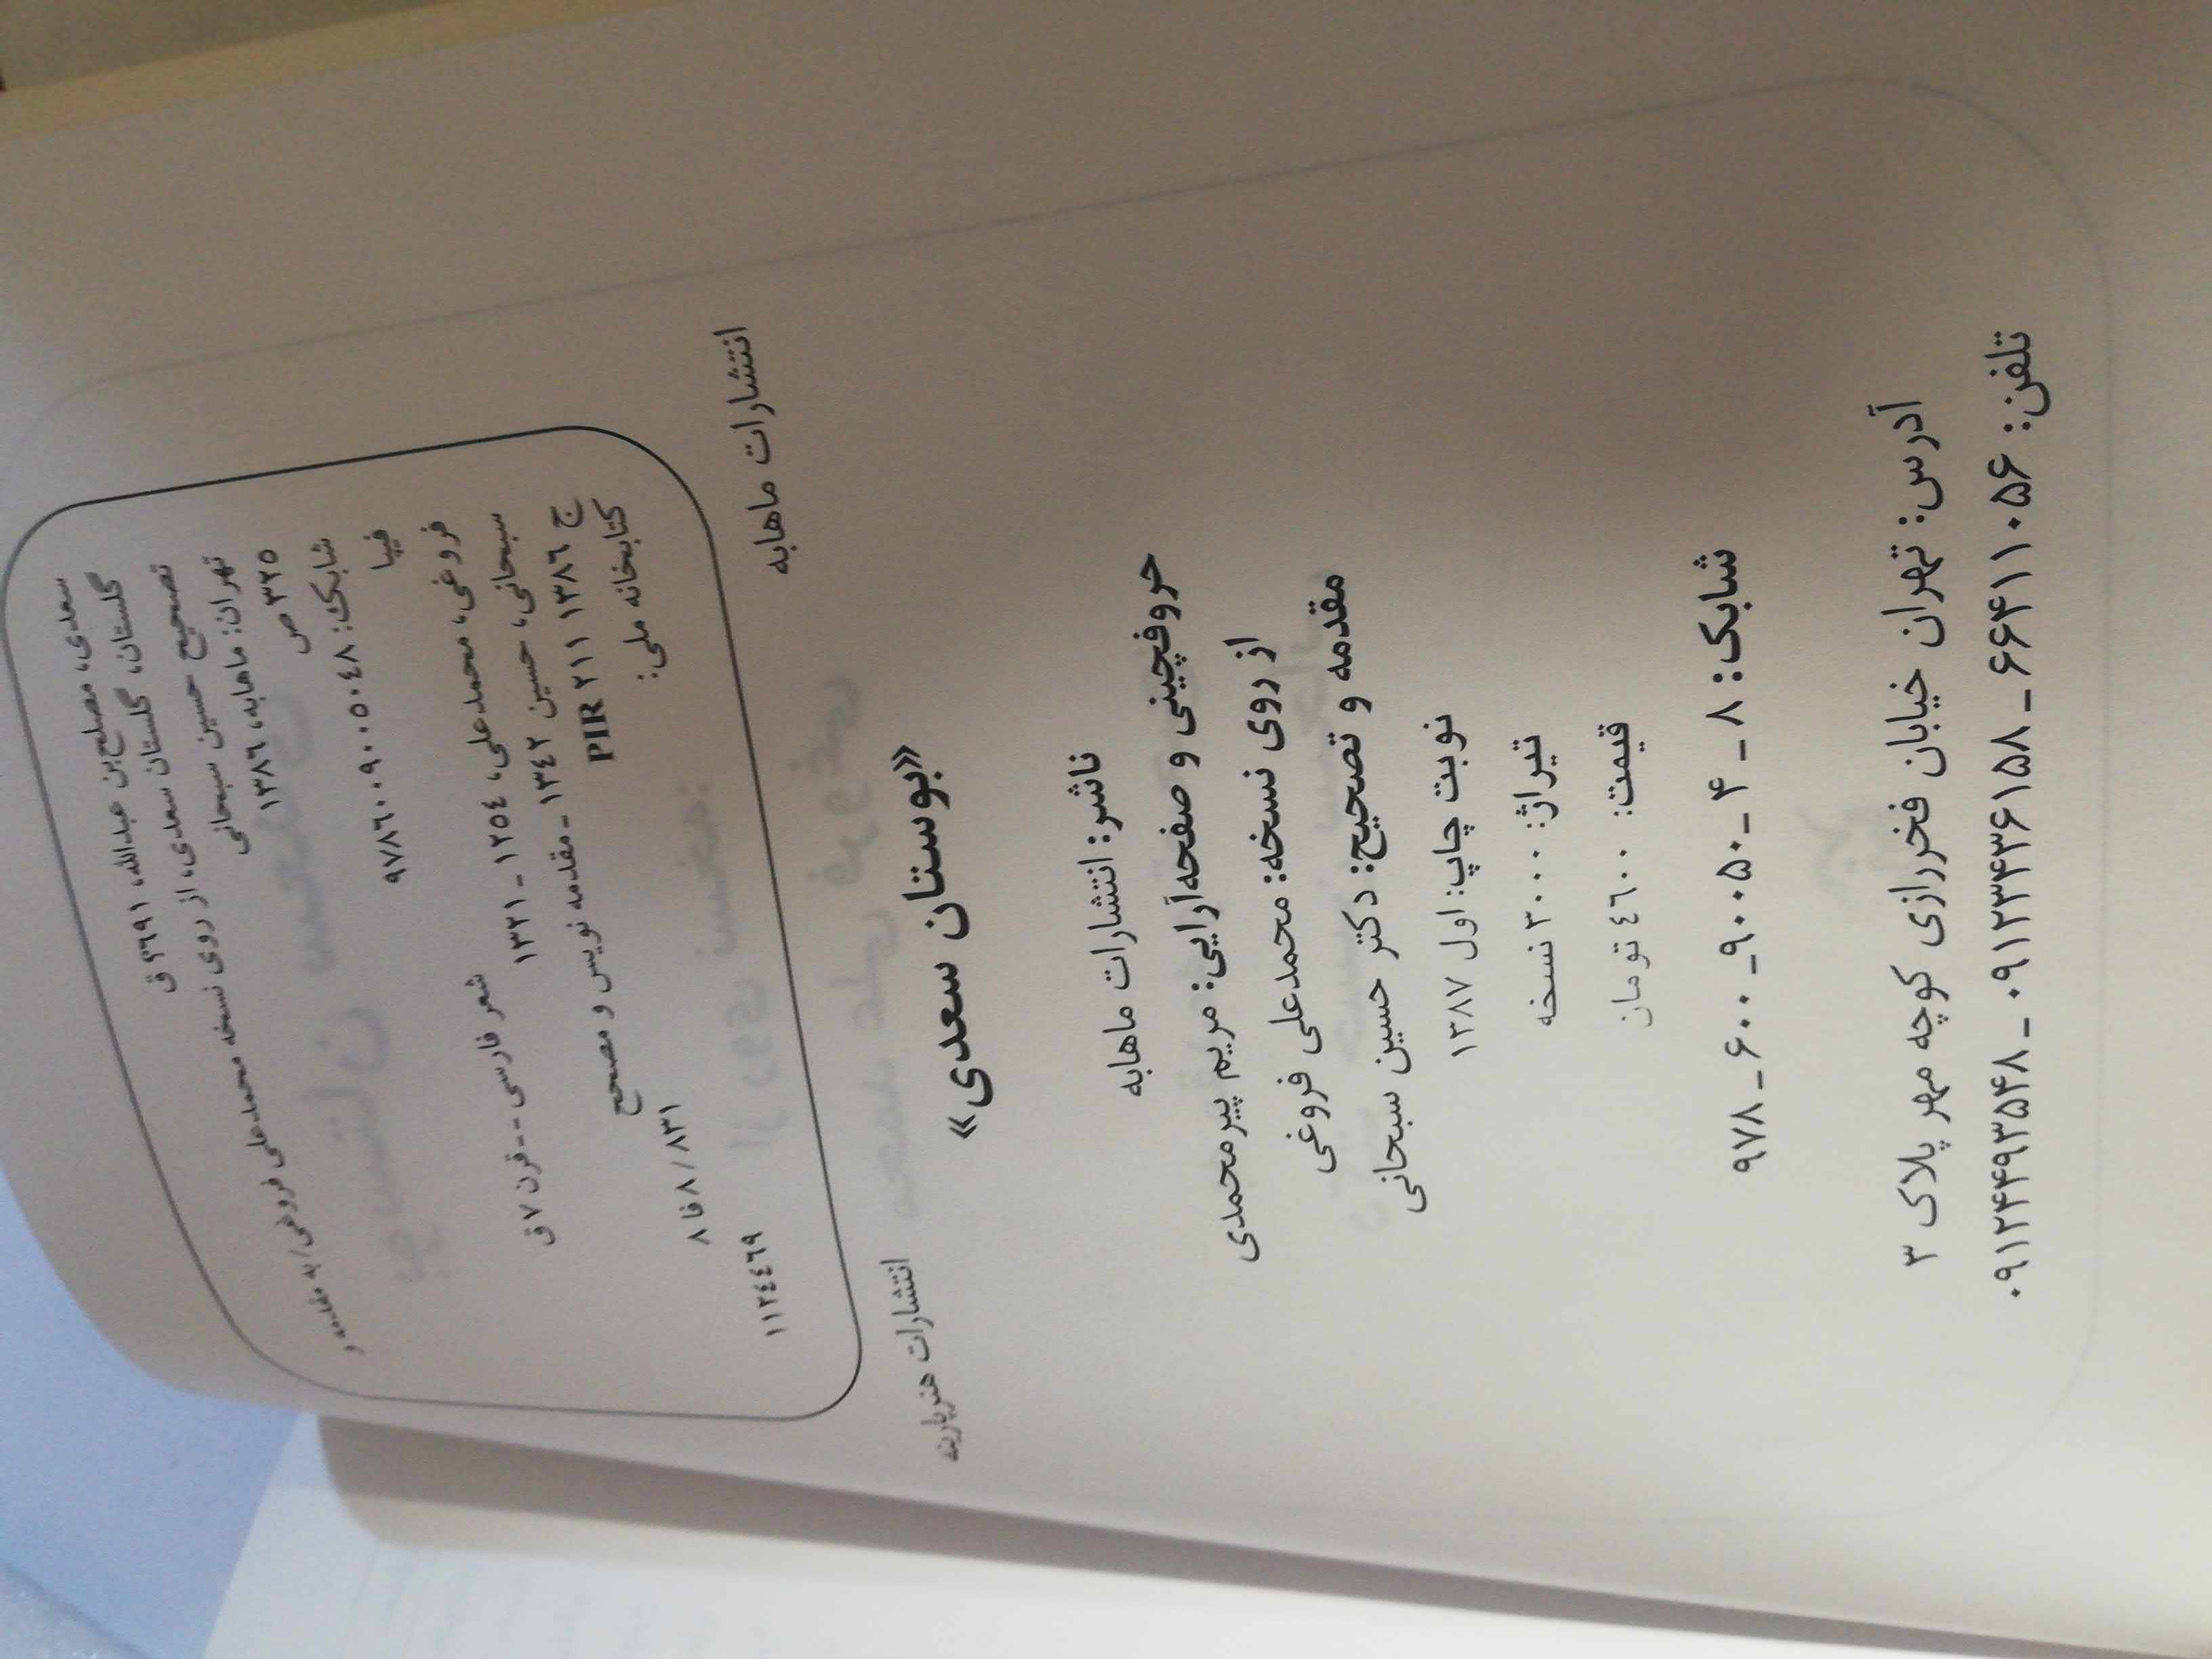 سعدی، مصلح‌بن عبدالله، ۶۹۱؟ ق
گلستان، گلستان سعدی، از روی نسخه محمدعلی فروغی/ به مقدمه و
تصحیح حسین سبحانی
تهران: ماهابه، ۱۳۸۶
۳۲۵ ص
شابک: ۹۷۸۶۰۰۹۰۰۵۰۴۸
فیپا
شعر فارسی -- قرن ۷ ق
فروغی، محمدعلی، ۱۲۵۴ - ۱۳۲۱
سبحانی، حسین ۱۳۴۲ - مقدمه نویس و مصحح
PIR ۲۱۱ ۱۳۸۶ ج
۸ فا ۸ / ۸۳۱
کتابخانه ملی:
۱۱۲۴۴۶۹
انتشارات ماهابه
انتشارات هنرپارینه
«بوستان سعدی»
ناشر: انتشارات ماهابه
حروفچینی و صفحه‌آرایی: مریم پیرمحمدی
از روی نسخه: محمدعلی فروغی
مقدمه و تصحیح: دکتر حسین سبحانی
نوبت چاپ: اول ۱۳۸۷
تیراژ: ۳۰۰۰ نسخه
قیمت: ۴۶۰۰ تومان
شابک: ۸ - ۴ - ۹۰۰۵۰ - ۶۰۰ - ۹۷۸
آدرس: تهران خیابان فخررازی کوچه مهر پلاک ۳
تلفن: ۶۶۴۱۱۰۵۶ - ۰۹۱۲۳۴۳۶۱۵۸ - ۰۹۱۲۴۴۹۳۵۴۸